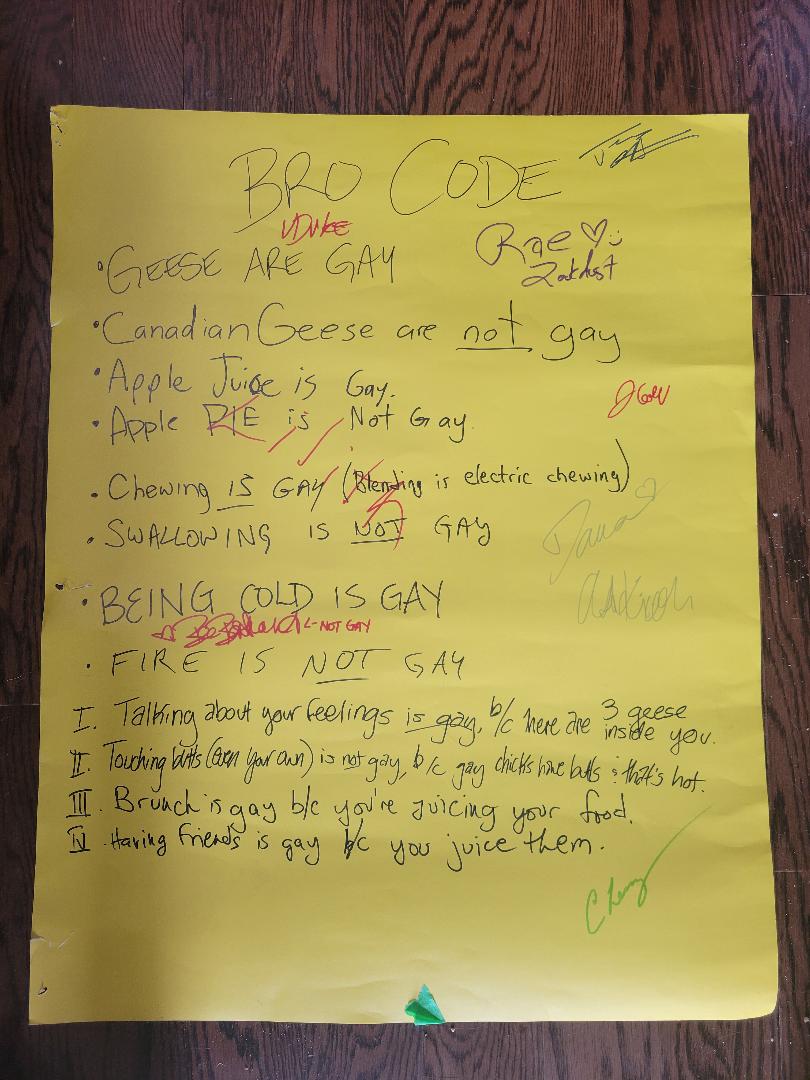 BRO CODE
Rae ♡ :)
• GEESE ARE GAY
• Canadian Geese are not gay
• Apple Juice is Gay.
• Apple PIE is Not Gay.
• Chewing IS GAY (Blending is electric chewing)
• SWALLOWING IS NOT GAY
• BEING COLD IS GAY
<- NOT GAY
• FIRE IS NOT GAY
I. Talking about your feelings is gay, b/c there are 3 geese inside you.
II. Touching butts (even your own) is not gay, b/c gay chicks have butts & that's hot.
III. Brunch is gay b/c you're juicing your food.
IV. Having friends is gay b/c you juice them.